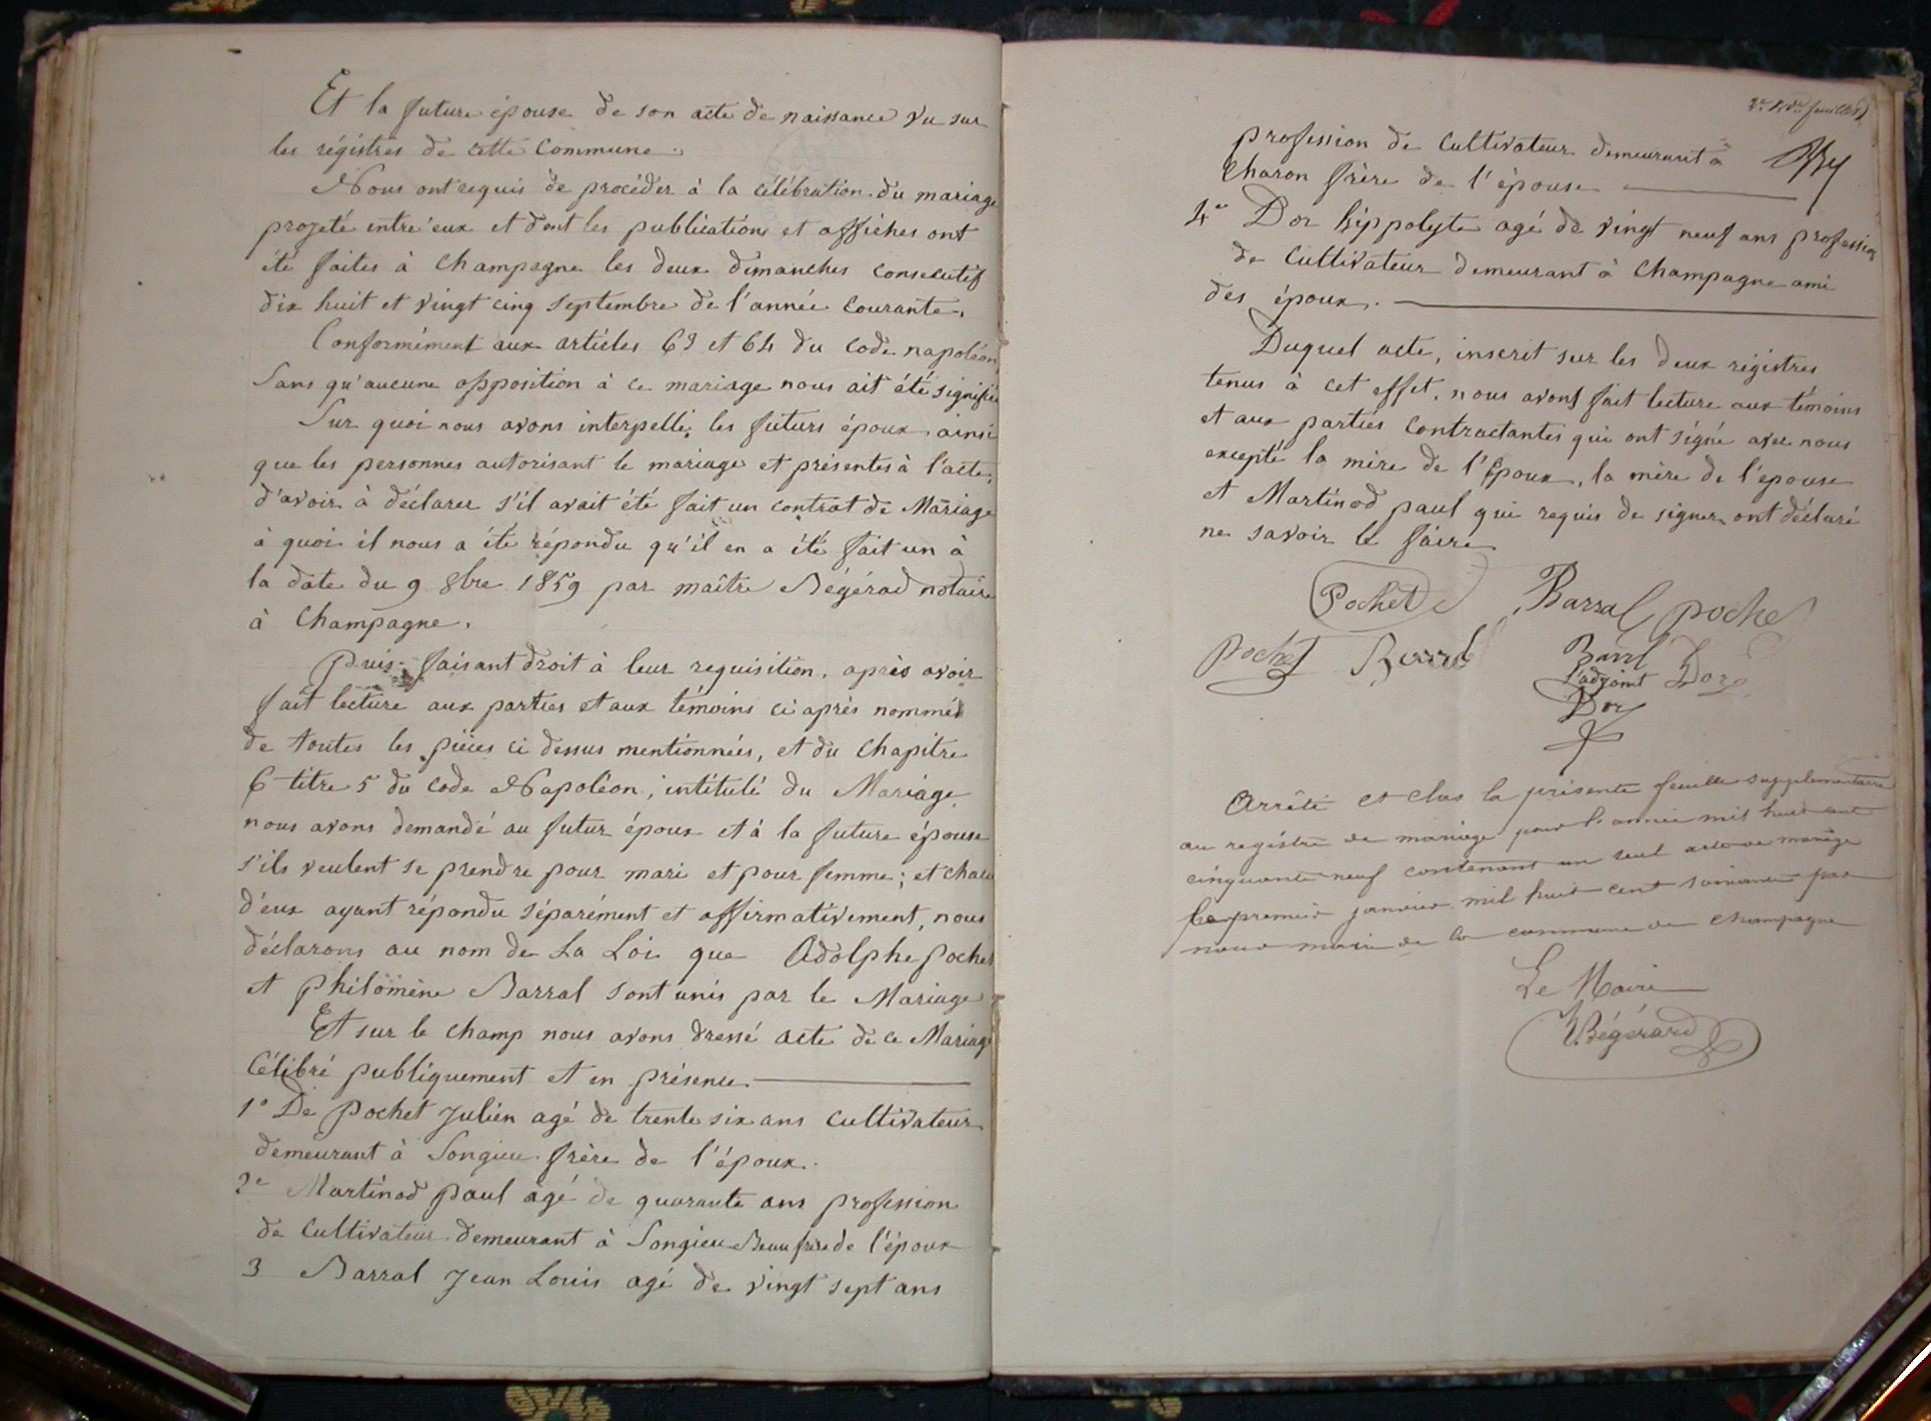 Et la future épouse de son acte de naissance vu sur
les régistres de cette Commune.
Nous ont requis de procéder à la célébration du mariage
projeté entre eux et dont les publications et affiches ont
été faites à Champagne les deux dimanches consecutifs
dix huit et vingt cinq septembre de l'année courante.
Conformément aux articles 63 et 64 du code napoléon,
Sans qu'aucune opposition à ce mariage nous ait été signifiée
Sur quoi nous avons interpellé, les futurs époux ainsi
que les personnes autorisant le mariage et présentes à l'acte,
d'avoir à déclarer s'il avait été fait un contrat de Mariage
à quoi il nous a été répondu qu'il en a été fait un à
la date du 9 8bre 1859 par maître Bégérad notaire
à Champagne.
Puis faisant droit à leur requisition, après avoir
fait lecture aux parties et aux témoins ci après nommés
de toutes les pièces ci dessus mentionnées, et du chapitre
6 titre 5 du code Napoléon, intitulé du Mariage,
nous avons demandé au futur époux et à la future épouse
s'ils veulent se prendre pour mari et pour femme; et chacun
d'eux ayant répondu séparément et affirmativement, nous
déclarons au nom de La Loi que Adolphe Pochet
et Philomène Barral sont unis par le Mariage
Et sur le champ nous avons dressé acte de ce Mariage
Célébré publiquement et en présence
1° De Pochet Julien agé de trente six ans Cultivateur
demeurant à Songieu frère de l'époux.
2e Martinod Paul agé de quarante ans profession
de Cultivateur demeurant à Songieu Beau frère de l'époux
3 Barral Jean Louis agé de vingt sept ans
feuillet
profession de Cultivateur demeurant à
Charon frère de l'épouse
4e Dor hippolyte agé de vingt neuf ans profession
de Cultivateur demeurant à Champagne ami
des époux.
Duquel acte, inscrit sur les deux régistres
tenus à cet effet, nous avons fait lecture aux témoins
et aux parties Contractantes qui ont signé avec nous
excepté la mère de l'époux, la mère de l'epouse
et Martinod paul qui requis de signer ont déclaré
ne savoir le faire
Pochet Barral Poche
Pochet Barral
L'adjoint Dor
Dor
Arrêté et clos la présente feuille supplementaire
au registre de mariage pour l'année mil huit cent
cinquante neuf contenant un seul acte de mariage
le premier janvier mil huit cent soixante par
nous maire de la commune de Champagne
Le Maire
Bégérard